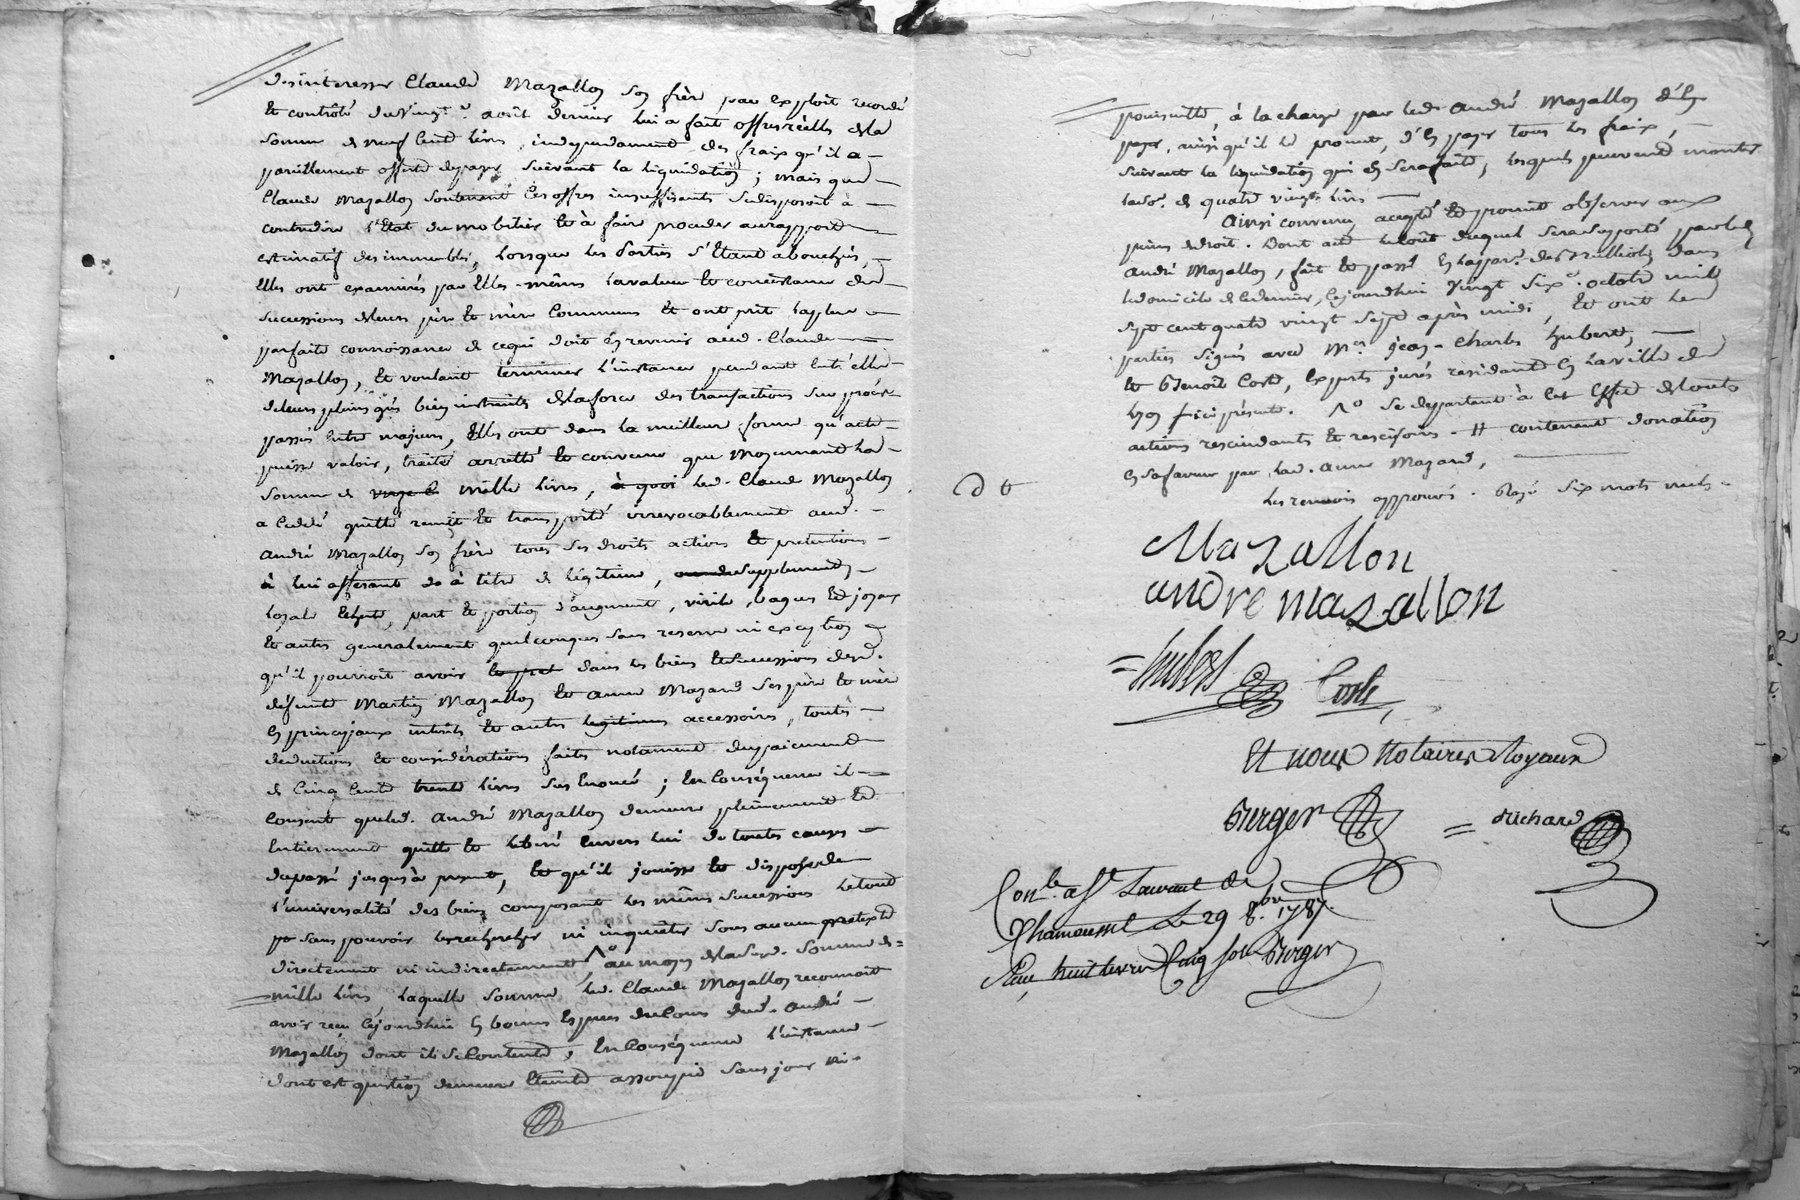 desinteresser Claude Mazallon son frère par exploit recordé
et contrôlé du vingt aoüt dernier lui a fait offres réelles de la
somme de neuf cent livres, independament des fraix qu'il a
pareillement offert de payer suivant la liquidation ; mais que
Claude Mazallon soutenant ces offres insuffisants se disposoit à
contredire l'Etat du mobilier et à faire proceder au rapport
estimatif des immeubles, lorsque les Parties s'étant abouchés,
Elles ont examinés par Elles-mêmes la valeur et consistance des
successions de leurs père et mère communs et ont prit la plus
parfaite connoissance de ce qui doit en revenir aud. Claude
Mazallon, et voulant terminer l'instance pendante entr'elles
de leurs pleins grés bien instruits de la force des transactions sur procès
passés entre majeurs, Elles ont dans la meilleur forme qu'acte
puisse valoir, traité arretté et convenu que moyennant la
somme de mille livres, à quoi led. Claude Mazallon
a Cédé quitté remit et transporté irrevocablement aud.
André Mazallon son frère tous ses droits actions et pretentions
à lui afferants de à titre de légitime, supplement
loyale Echute, part et portion d'augment, virile, bagues et joyaux
et autres generalement quelconques sans reserve ni exception
qu'il pourroit avoir dans les biens et successions desd.
défunts Martin Mazallon et anne Mazard ses père et mère
En principaux intérêts et autres legitimes accessoires, toutes
deductions et considérations faites notament du paiement
de cinq cent trente livres sus Enoncé ; En Conséquence il
Consent que led. André Mazallon demeure pleinement et
Entierement quitte et liberé envers lui de toutes causes
du passé jusqu'à present, et qu'il jouisse et dispose de
l'universalité des biens composant les mêmes successions le tout
sans pouvoir le rechercher ni inquiéter sous aucun pretexte
directement ni indirectement au moyen de lad. somme de
mille livres, laquelle somme led. Claude Mazallon reconnoit
avoir reçu cejourdhui En bonnes Especes du Cours dud. André
Mazallon dont il se Contente ; En Conséquence l'instance
dont est question demeure Eteinte assoupie sans jour ni
poursuitte, à la charge par led. André Mazallon d'En
payer, ainsi qu'il le promet, d'En payer tous les fraix,
suivant la liquidation qui En sera faite, lesquels peuvent monter
la so. de quatre vingt livres
Ainsi convenu, accepté et promit observer aux
peines de droit. Dont acte le coüt duquel sera supporté par led.
André Mazallon, fait et passé En la par. des dans
le domicile de ce dernier, cejourdhui vingt six octobre mil
sept cent quatre vingt sept après midi, et ont les
parties signés avec Mrs. jean-Charles hubert,
et Benoit Coste, Experts jurés residant En la ville de
lyon ici présents. se departant à cet Effet de touts
actions rescindants et rescisoires. contenant donation
En sa faveur par lad. anne Mazard,
les renvois approuvés. Rayé six mots nuls.
Mazallon
andre mazallon
hubert Coste
Et nous Notaires Royaux
Berger Richard
Conle. a St. Laurent de
Chamousset Le 29 8.bre 1787.
Reçu huit livres Cinq sols Berger